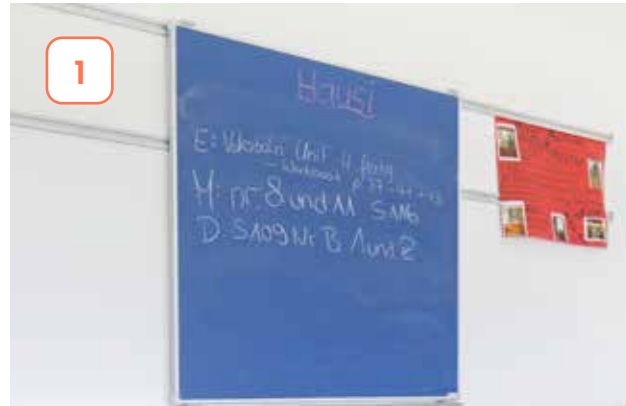 1
Hausi
E: Vokabeln Unit 4 fertig
- Workbook p. 37
M: nr 8 und 11 S116
D: S109 Nr B 1 und 2